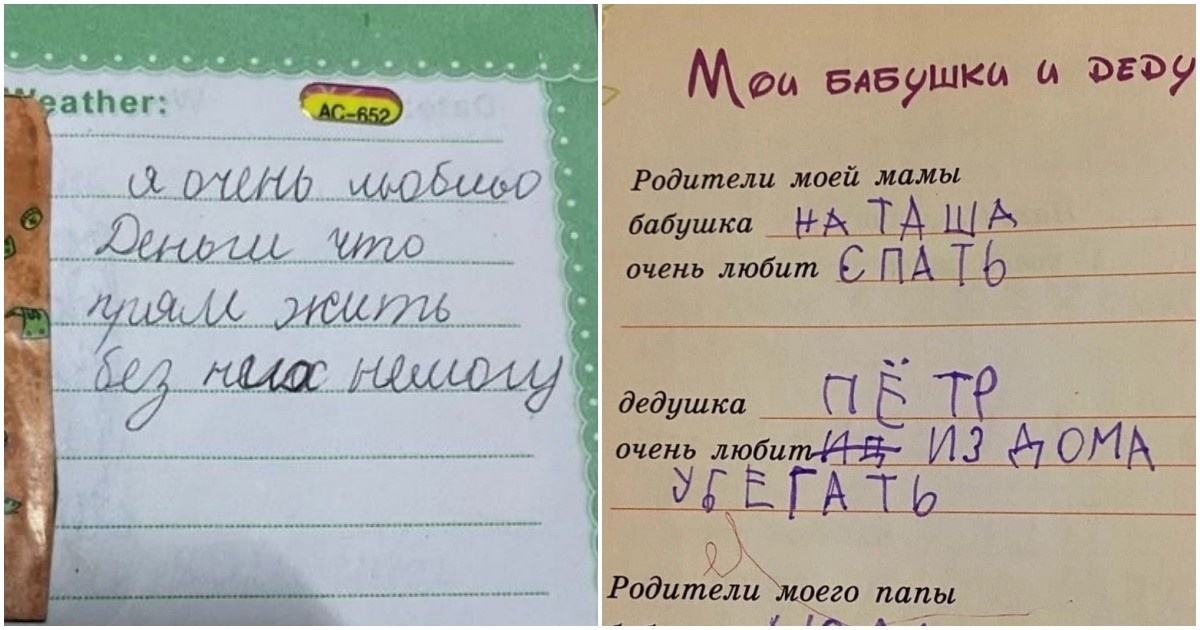 Weather:
AC-652
я очень люблю
Деньги что
прям жить
без него немогу
Мои БАБУШКИ И ДЕДУ
Родители моей мамы
бабушка НАТАША
очень любит ЄПАТЬ
дедушка ПЁТР
очень любит ИЗ ДОМА
УБЕГАТЬ
Родители моего папы